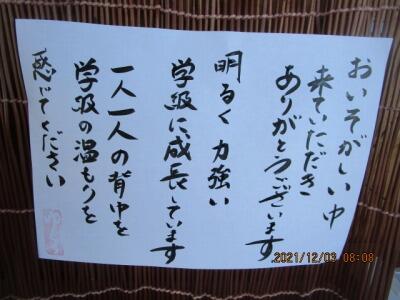 おいそがしい中
来ていただき
ありがとうございます
明るく 力強い
学級に成長しています
一人一人の背中を
学級の温もりを
感じてください
2021/12/03 08:08